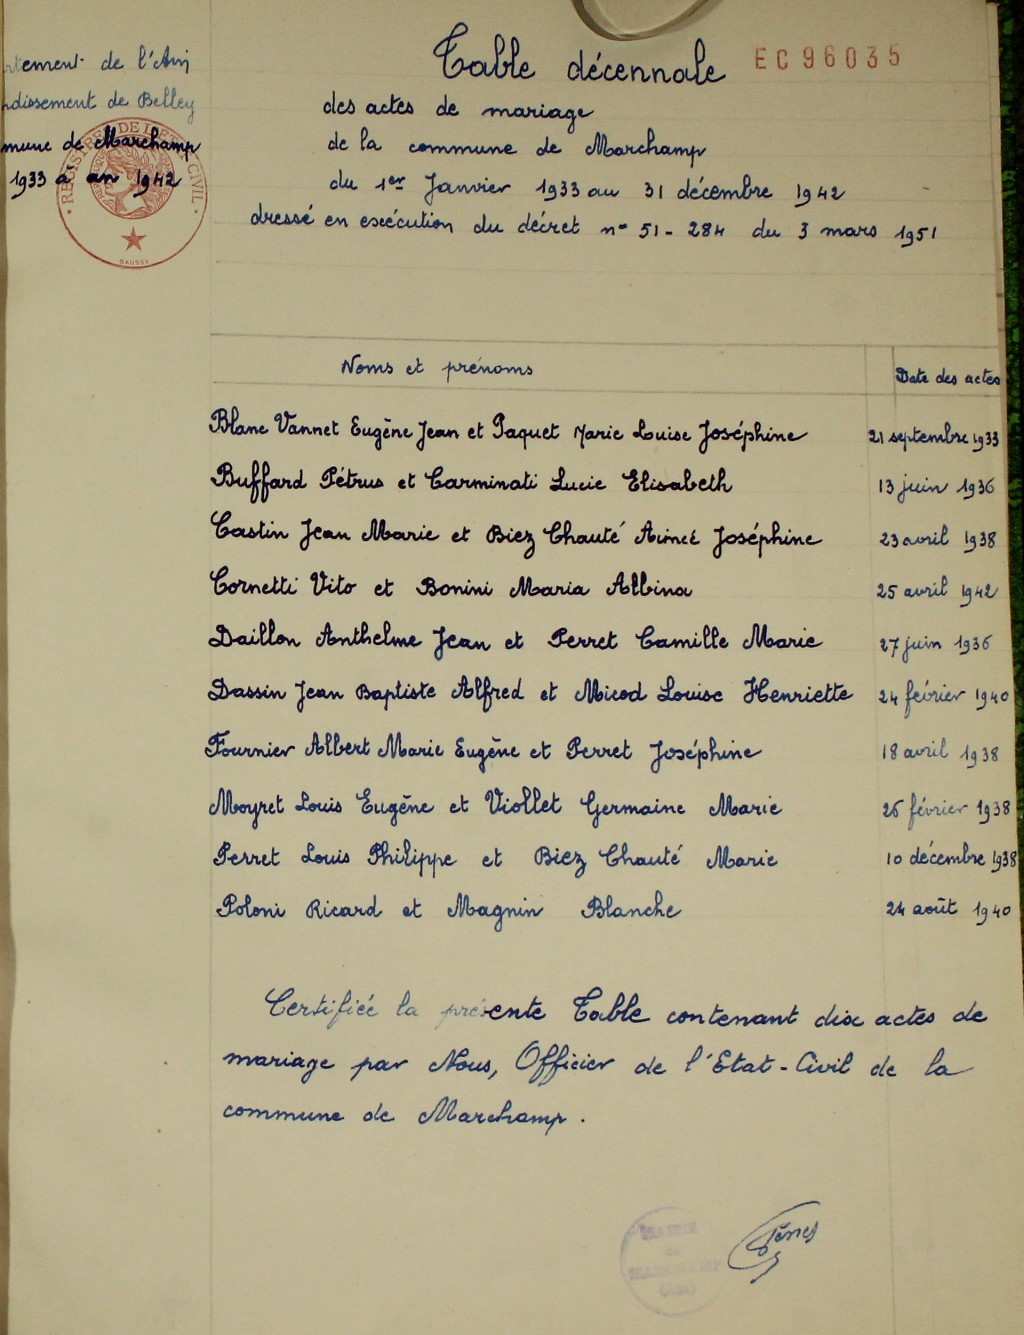 rtement de l'Ain
ndissement de Belley
mune de Marchamp
1933 à an 1942
REGISTRE DE L'ETAT CIVIL
Table décennale
EC96035
des actes de mariage
de la commune de Marchamp
du 1er Janvier 1933 au 31 décembre 1942
dressé en exécution du décret n° 51-284 du 3 mars 1951
Noms et prénoms Date des actes
Blanc Vannet Eugène Jean et Paquet Marie Louise Joséphine 21 septembre 1933
Buffard Pétrus et Carminati Lucie Elisabeth 13 juin 1936
Castin Jean Marie et Biez Chauté Aimée Joséphine 23 avril 1938
Cornetti Vito et Bonini Maria Albina 25 avril 1942
Daillon Anthelme Jean et Perret Camille Marie 27 juin 1936
Dassin Jean Baptiste Alfred et Micod Louise Henriette 24 février 1940
Fournier Albert Marie Eugène et Perret Joséphine 18 avril 1938
Moyret Louis Eugène et Viollet Germaine Marie 26 février 1938
Perret Louis Philippe et Biez Chauté Marie 10 décembre 1938
Poloni Ricard et Magnin Blanche 24 août 1940
Certifiée la présente Table contenant dix actes de
mariage par Nous, Officier de l'Etat-Civil de la
commune de Marchamp.
MAIRIE